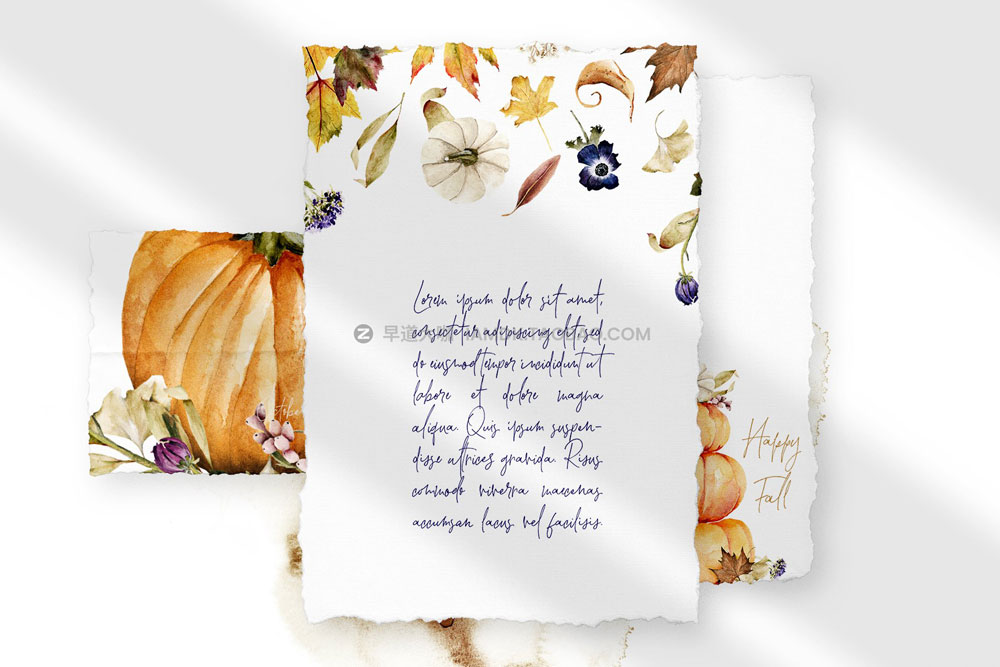 Lorem ipsum dolor sit amet,
consectetur adipiscing elit, sed
do eiusmod tempor incididunt ut
labore et dolore magna
aliqua. Quis ipsum suspen-
disse ultrices gravida. Risus
commodo viverra maecenas
accumsan lacus vel facilisis.
Happy
Fall